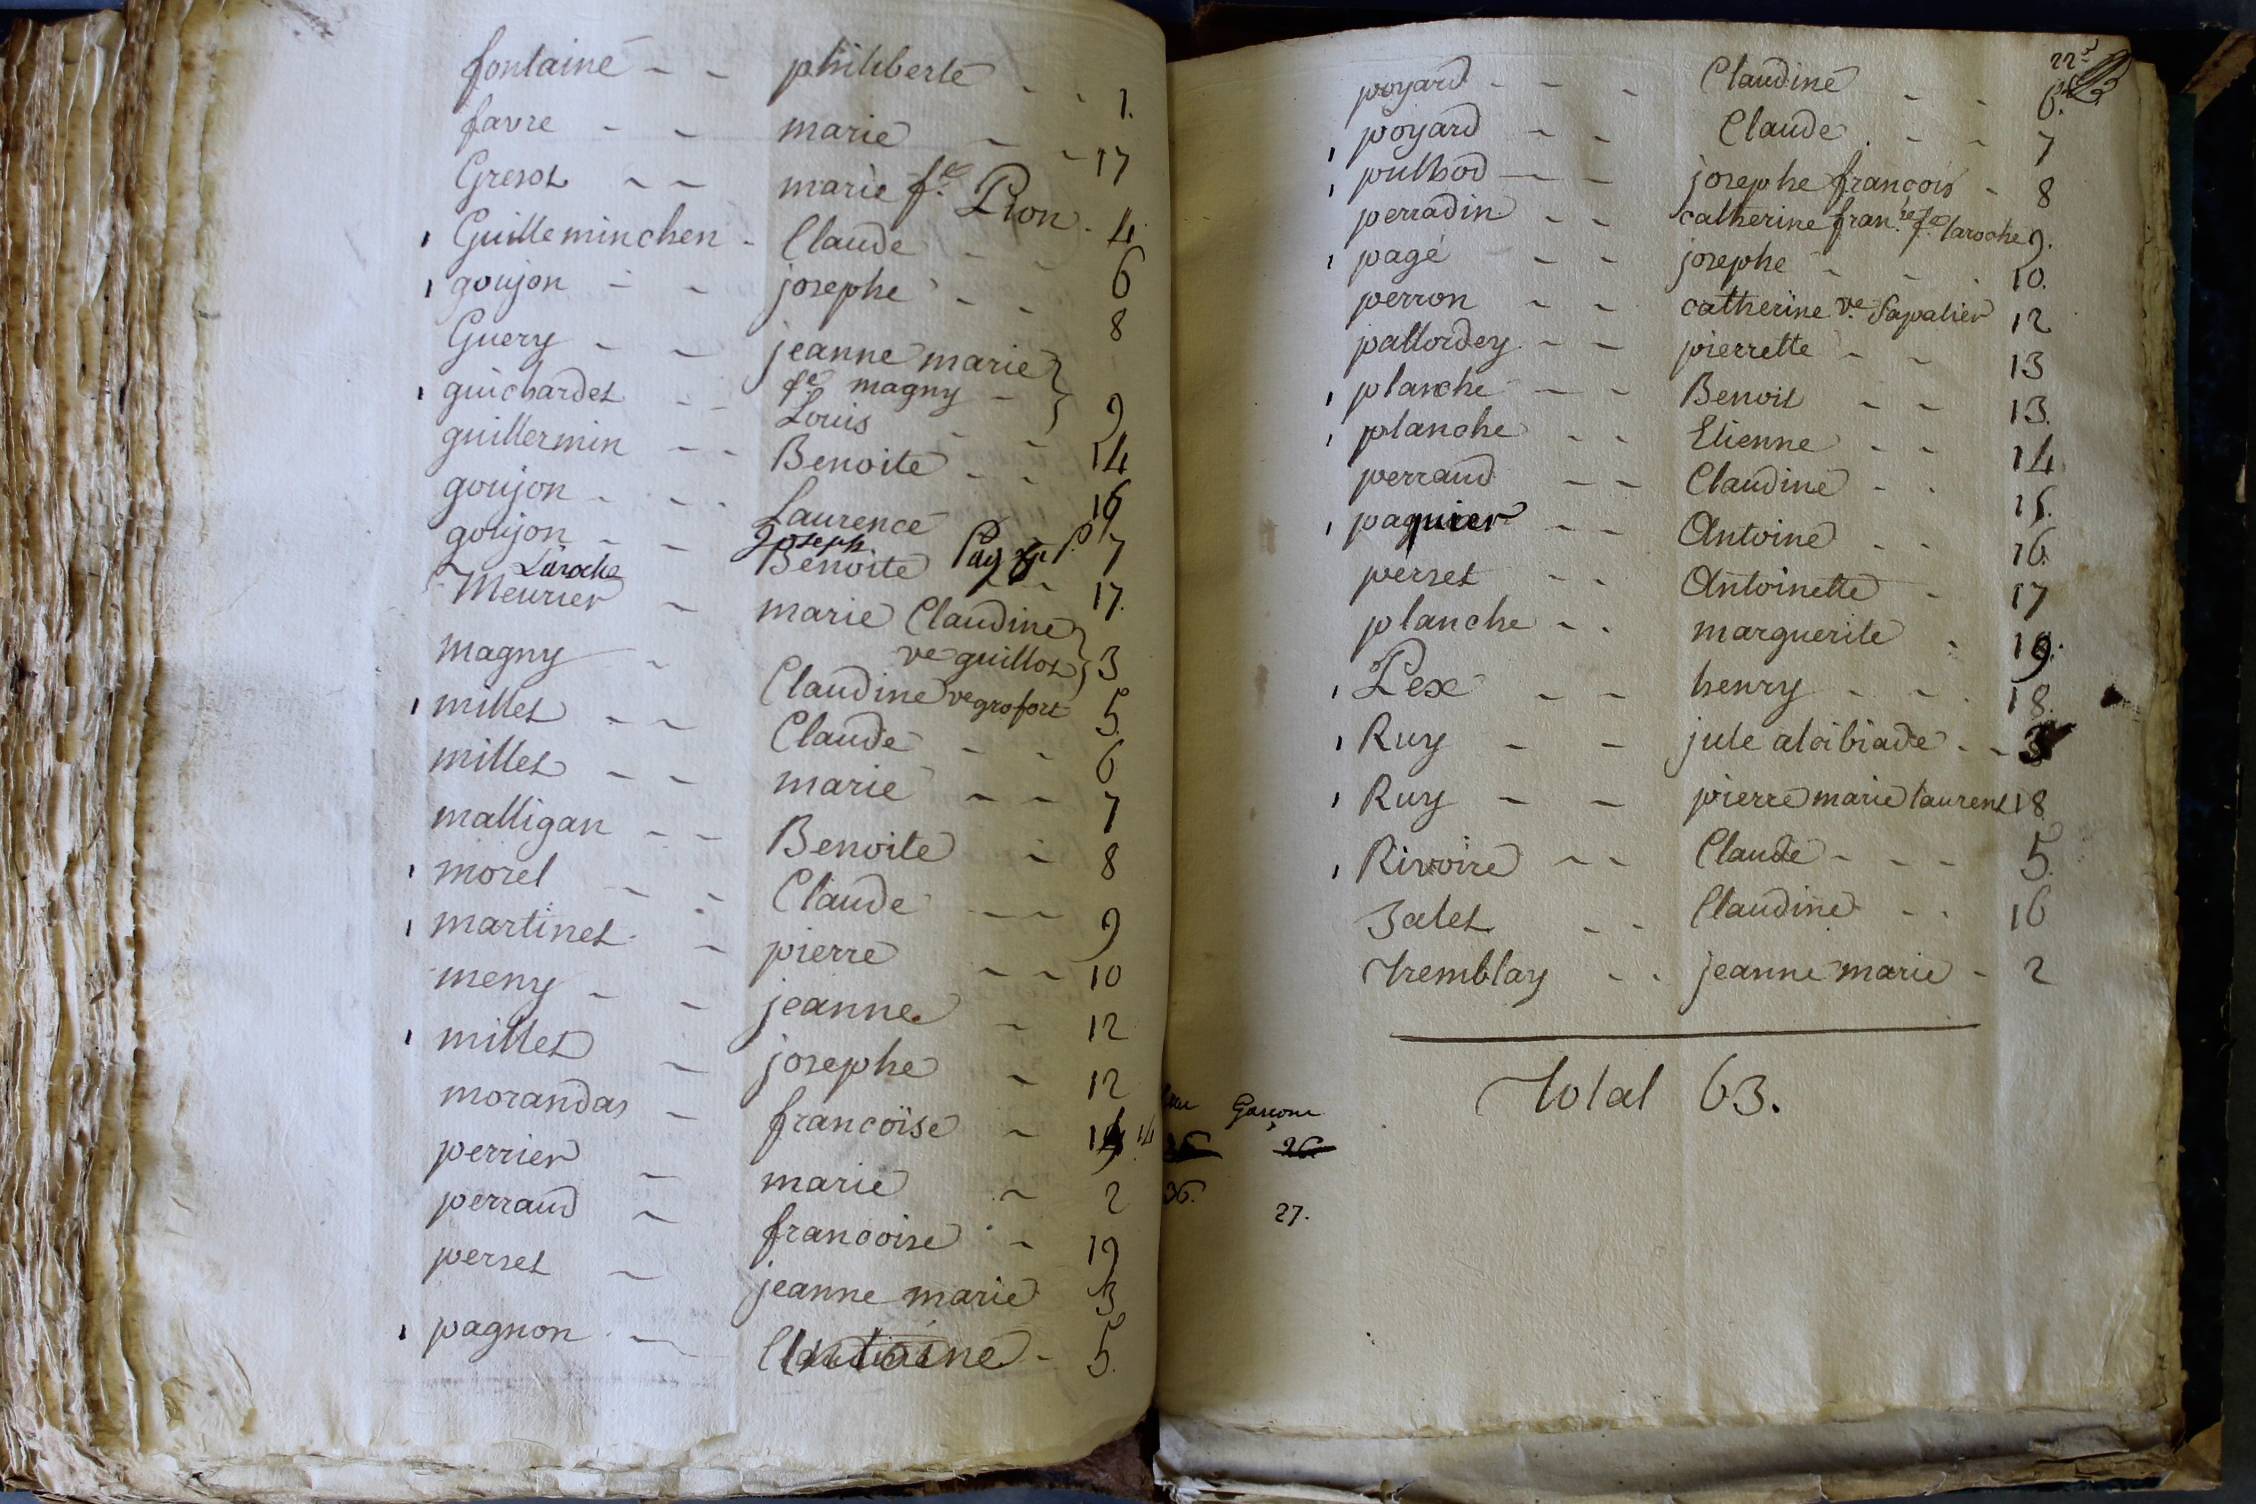 fontaine - - philiberte - - 1.
favre - - marie - - 17
Gresot - - marie fe. Pion. 4.
Guilleminchen - Claude - - 6
goujon - - josephe - - 8
Guery - - jeanne marie
fe magny - 9
guichardet - - Louis - - 14
guillermin - - Benoite - - 16
goujon - - - Laurence
goujon - - Joseph 7
Laroche Benoite - - 17.
Meurier - marie Claudine
ve guillot 3
magny - Claudine ve grofort 5.
millet - - Claude - - 6
millet - - marie - - 7
malligan - - Benoite - 8
morel - - Claude - - 9
martinet - pierre - - 10
meny - - jeanne - 12
millet - josephe - 12
morandas - francoïse - 14
perrier - marie - 2
perraud - francoise - 19
perset - jeanne marie 3
pagnon - Antoine - 5.
22e
poyard - - - Claudine - - 6.
poyard - - Claude - - 7
pulhod - - josephe francois - 8
perradin - - catherine franse. fe. laroche 9.
pagé - - josephe - - 10.
perron - - catherine ve. Sapalier 12
pallordey - - pierrette - - 13
planche - - Benoit - - 13.
planche - - Etienne - - 14
perraud - - Claudine - - 15.
paquier - - Antoine - - 16.
perset - - Antoinette - 17
planche - - marguerite - 19.
Pex - - henry - - 18.
Ruy - - jule alcibiade - - 3
Ruy - - pierre marie laurent 18
Rivoire - - Claude - - - 5.
Jalet - - Claudine - - 16
Tremblay - - jeanne marie - 2
Total 63.
Garçons
26.
36.
27.